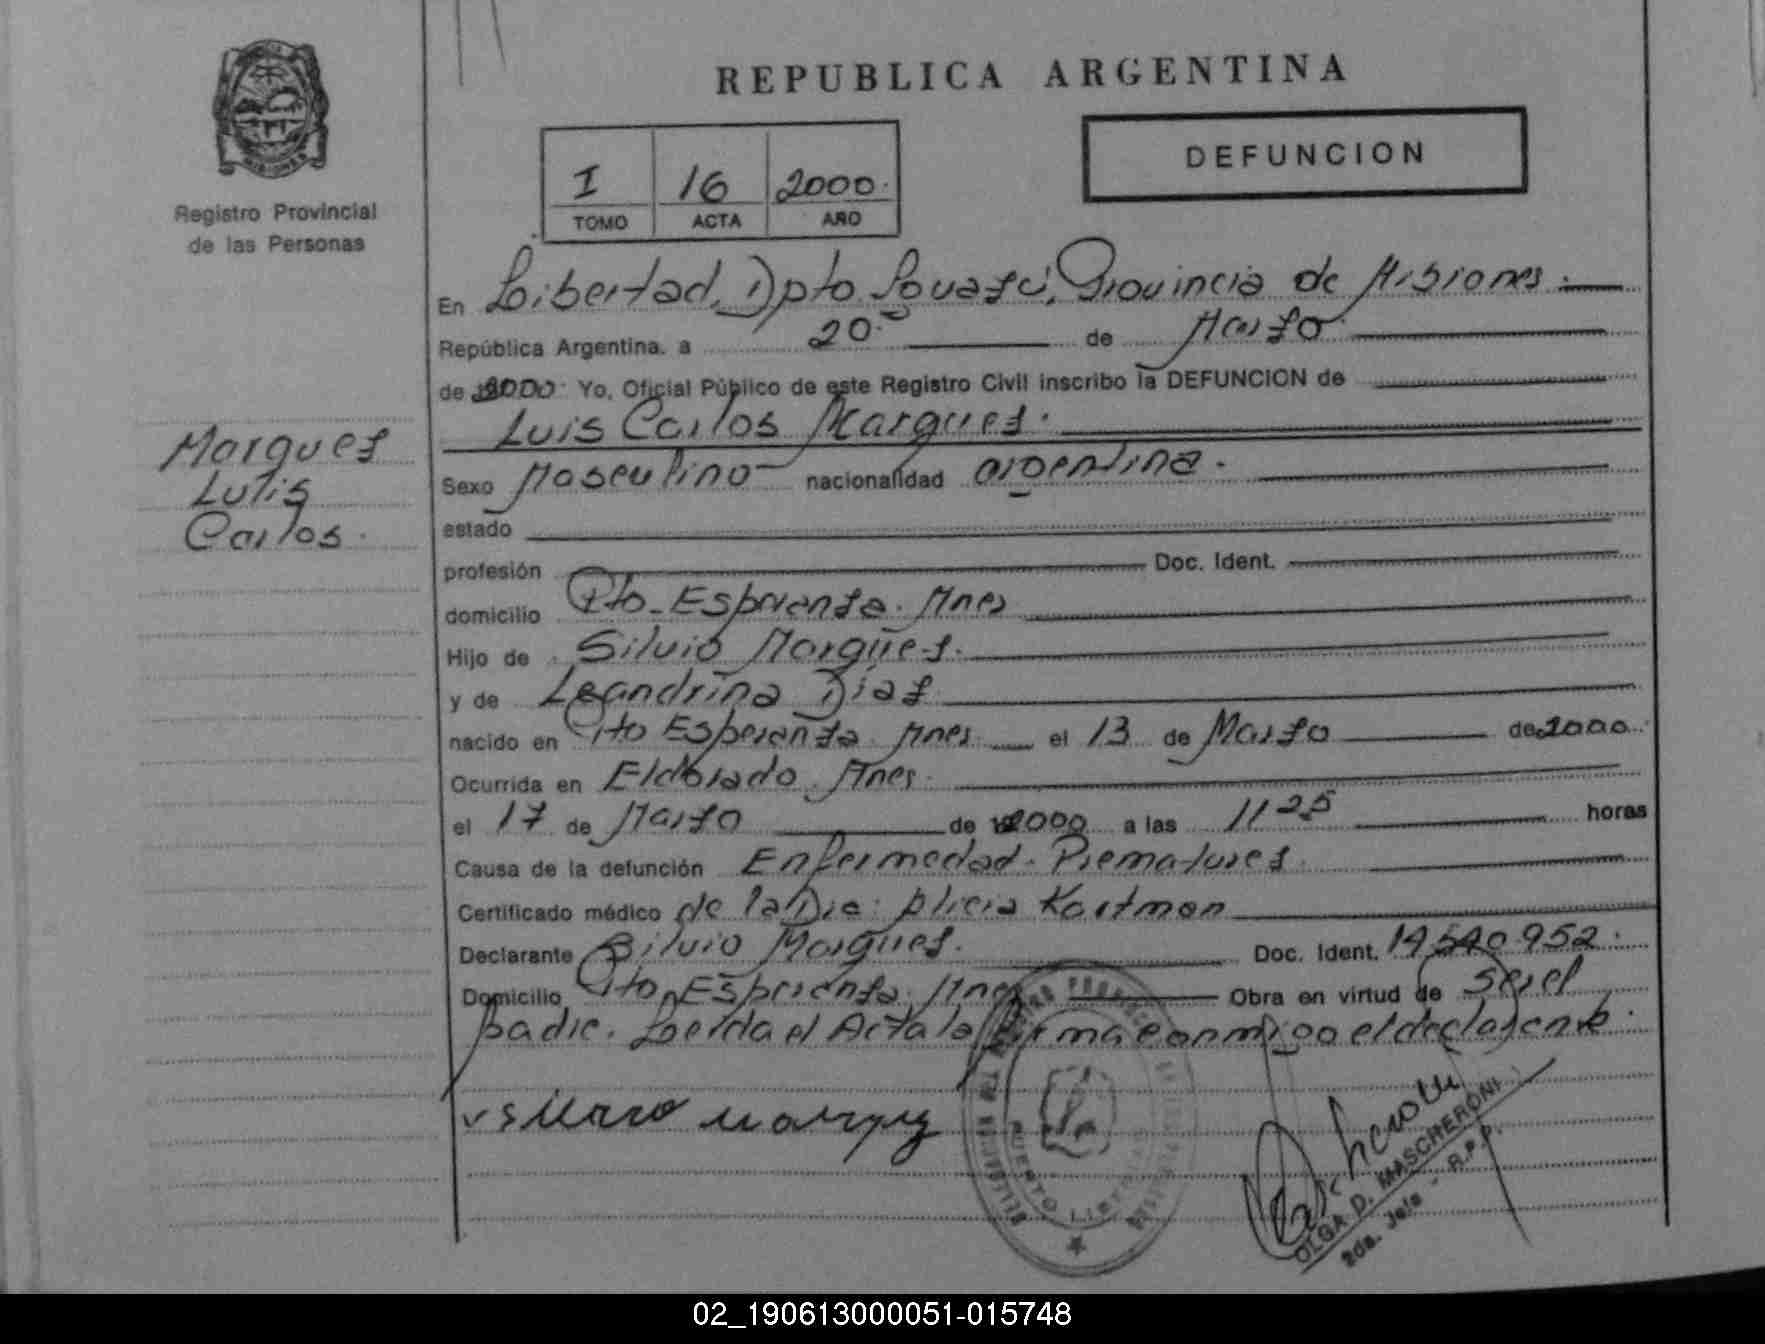 REPUBLICA ARGENTINA
MISIONES
Registro Provincial
de las Personas
I 16 2000.
TOMO ACTA AÑO
DEFUNCION
En Libertad, Dpto Iguazú, Provincia de Misiones.
República Argentina, a 20 de Marzo
de 2000. Yo, Oficial Público de este Registro Civil inscribo la DEFUNCION de
Luis Carlos Marques.
Marques
Luis
Carlos.
Sexo Masculino nacionalidad argentina.
estado
profesión Doc. Ident.
domicilio Pto. Esperanza. Mnes
Hijo de Silvio Marques.
y de Leandrina Diaz
nacido en Pto Esperanza Mnes el 13 de Marzo de 2000.
Ocurrida en Eldorado, Mnes.
el 17 de Marzo de 2000 a las 11 25 horas
Causa de la defunción Enfermedad. Prematures
Certificado médico de la Dra: Alicia Kortman
Declarante Silvio Marques. Doc. Ident. 14540952.
Domicilio Pto Esperanza. Mnes Obra en virtud de ser el
padre. Leida el Acta la firma conmigo el declarante.
OLGA D. MASCHERONI
2da. Jefa - R.P.P.
PUERTO LIBERTAD
02_190613000051-015748